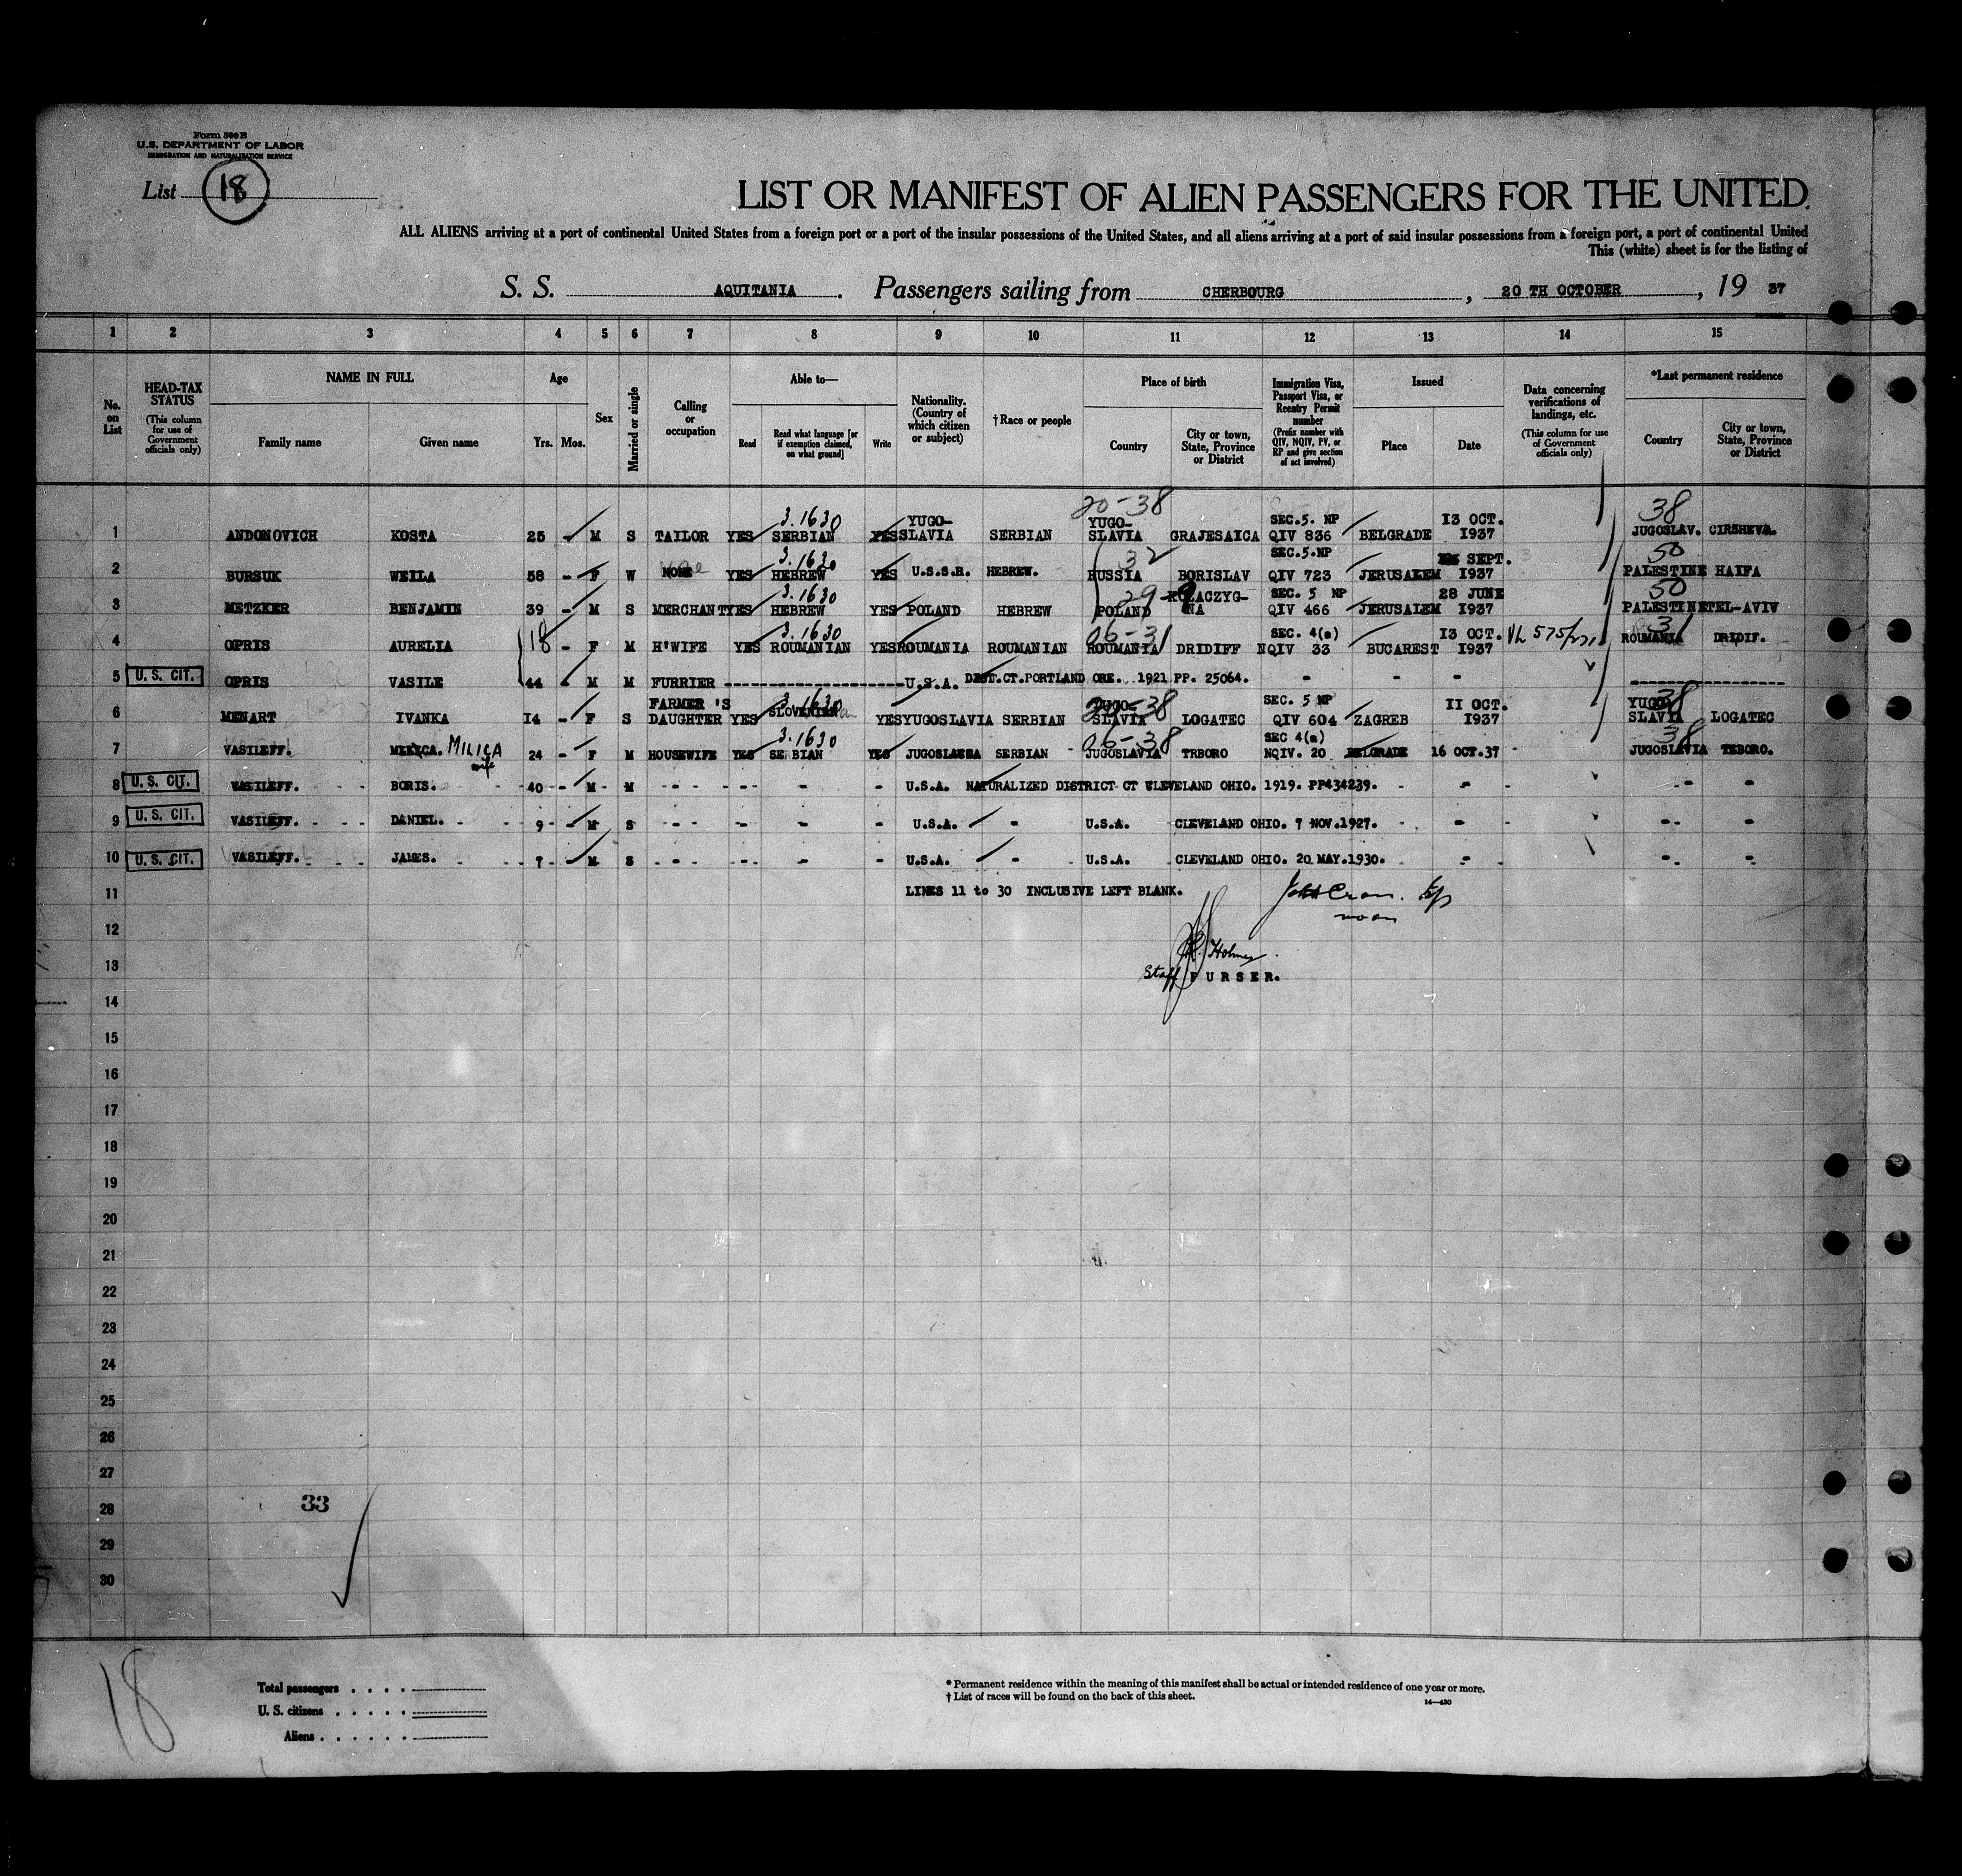 Form 500 B
U.S. DEPARTMENT OF LABOR
IMMIGRATION AND NATURALIZATION SERVICE
List 18
LIST OR MANIFEST OF ALIEN PASSENGERS FOR THE UNITED
ALL ALIENS arriving at a port of continental United States from a foreign port or a port of the insular possessions of the United States, and all aliens arriving at a port of said insular possessions from a foreign port, a port of continental United
This (white) sheet is for the listing of
S. S. AQUITANIA. Passengers sailing from CHERBOURG, 20 TH OCTOBER, 19 37
1 2 3 4 5 6 7 8 9 10 11 12 13 14 15
No. on List
HEAD-TAX STATUS (This column for use of Government officials only)
NAME IN FULL
Family name Given name
Age
Yrs. Mos.
Sex
Married or single
Calling or occupation
Able to—
Read Read what language [or if exemption claimed, on what ground] Write
Nationality. (Country of which citizen or subject)
†Race or people
Place of birth
Country City or town, State, Province or District
Immigration Visa, Passport Visa, or Reentry Permit number (Prefix number with QIV, NQIV, PV, or RP and give section of act involved)
Issued
Place Date
Data concerning verifications of landings, etc. (This column for use of Government officials only)
*Last permanent residence
Country City or town, State, Province or District
20-38 38
3.1630 YUGO- YUGO- SEC.5. NP 13 OCT.
1 ANDONOVICH KOSTA 25 - M S TAILOR YES SERBIAN YES SLAVIA SERBIAN SLAVIA GRAJESAICA QIV 836 BELGRADE 1937 JUGOSLAV. CIRSHEVA.
3.1630 32 SEC.5.NP SEPT. 50
2 BURSUK WEILA 58 - F W NONE YES HEBREW YES U.S.S.R. HEBREW. RUSSIA BORISLAV QIV 723 JERUSALEM 1937 PALESTINE HAIFA
3.1630 29 KOLACZYG- SEC. 5 NP 28 JUNE 50
3 METZKER BENJAMIN 39 - M S MERCHANT YES HEBREW YES POLAND HEBREW POLAND NA QIV 466 JERUSALEM 1937 PALESTINE TEL-AVIV
3.1630 06-31 SEC. 4(a) 13 OCT. 31
4 OPRIS AURELIA 18 - F M H'WIFE YES ROUMANIAN YES ROUMANIA ROUMANIAN ROUMANIA DRIDIFF NQIV 33 BUCAREST 1937 ROUMANIA DRIDIF.
5 U. S. CIT. OPRIS VASILE 44 - M M FURRIER U.S.A. DIST.CT.PORTLAND ORE. 1921 PP. 25064. - - -
FARMER 'S 3.1630 YUGO- 20-38 SEC. 5 NP 11 OCT. YUGO- 38
6 MENART IVANKA 14 - F S DAUGHTER YES SLOVENIAN YES YUGOSLAVIA SERBIAN SLAVIA LOGATEC QIV 604 ZAGREB 1937 SLAVIA LOGATEC
3.1630 06-38 SEC 4(a) 38
7 VASILEFF. MILICA wife 24 - F M HOUSEWIFE YES SE BIAN YES SERBIAN JUGOSLAVIA TRBORO NQIV. 20 BELGRADE 16 OCT.37 JUGOSLAVIA TEBORO.
8 U. S. CIT. VASILEFF. BORIS. 40 - M M - - - U.S.A. NATURALIZED DISTRICT CT CLEVELAND OHIO. 1919. PP434239. - - - -
9 U. S. CIT. VASILEFF. DANIEL. 9 - M S - - - U.S.A. - U.S.A. CLEVELAND OHIO. 7 NOV.1927. - - -
10 U. S. CIT. VASILEFF. JAMES. 7 - M S - - - U.S.A. - U.S.A. CLEVELAND OHIO. 20 MAY.1930. - - -
11 LINES 11 to 30 INCLUSIVE LEFT BLANK.
12
Holmes
13 Staff PURSER.
14
15
16
17
18
19
20
21
22
23
24
25
26
27
28 33
29
30
18
Total passengers . . . .
U. S. citizens . . . . .
Aliens . . . . . .
* Permanent residence within the meaning of this manifest shall be actual or intended residence of one year or more.
† List of races will be found on the back of this sheet.
14—430